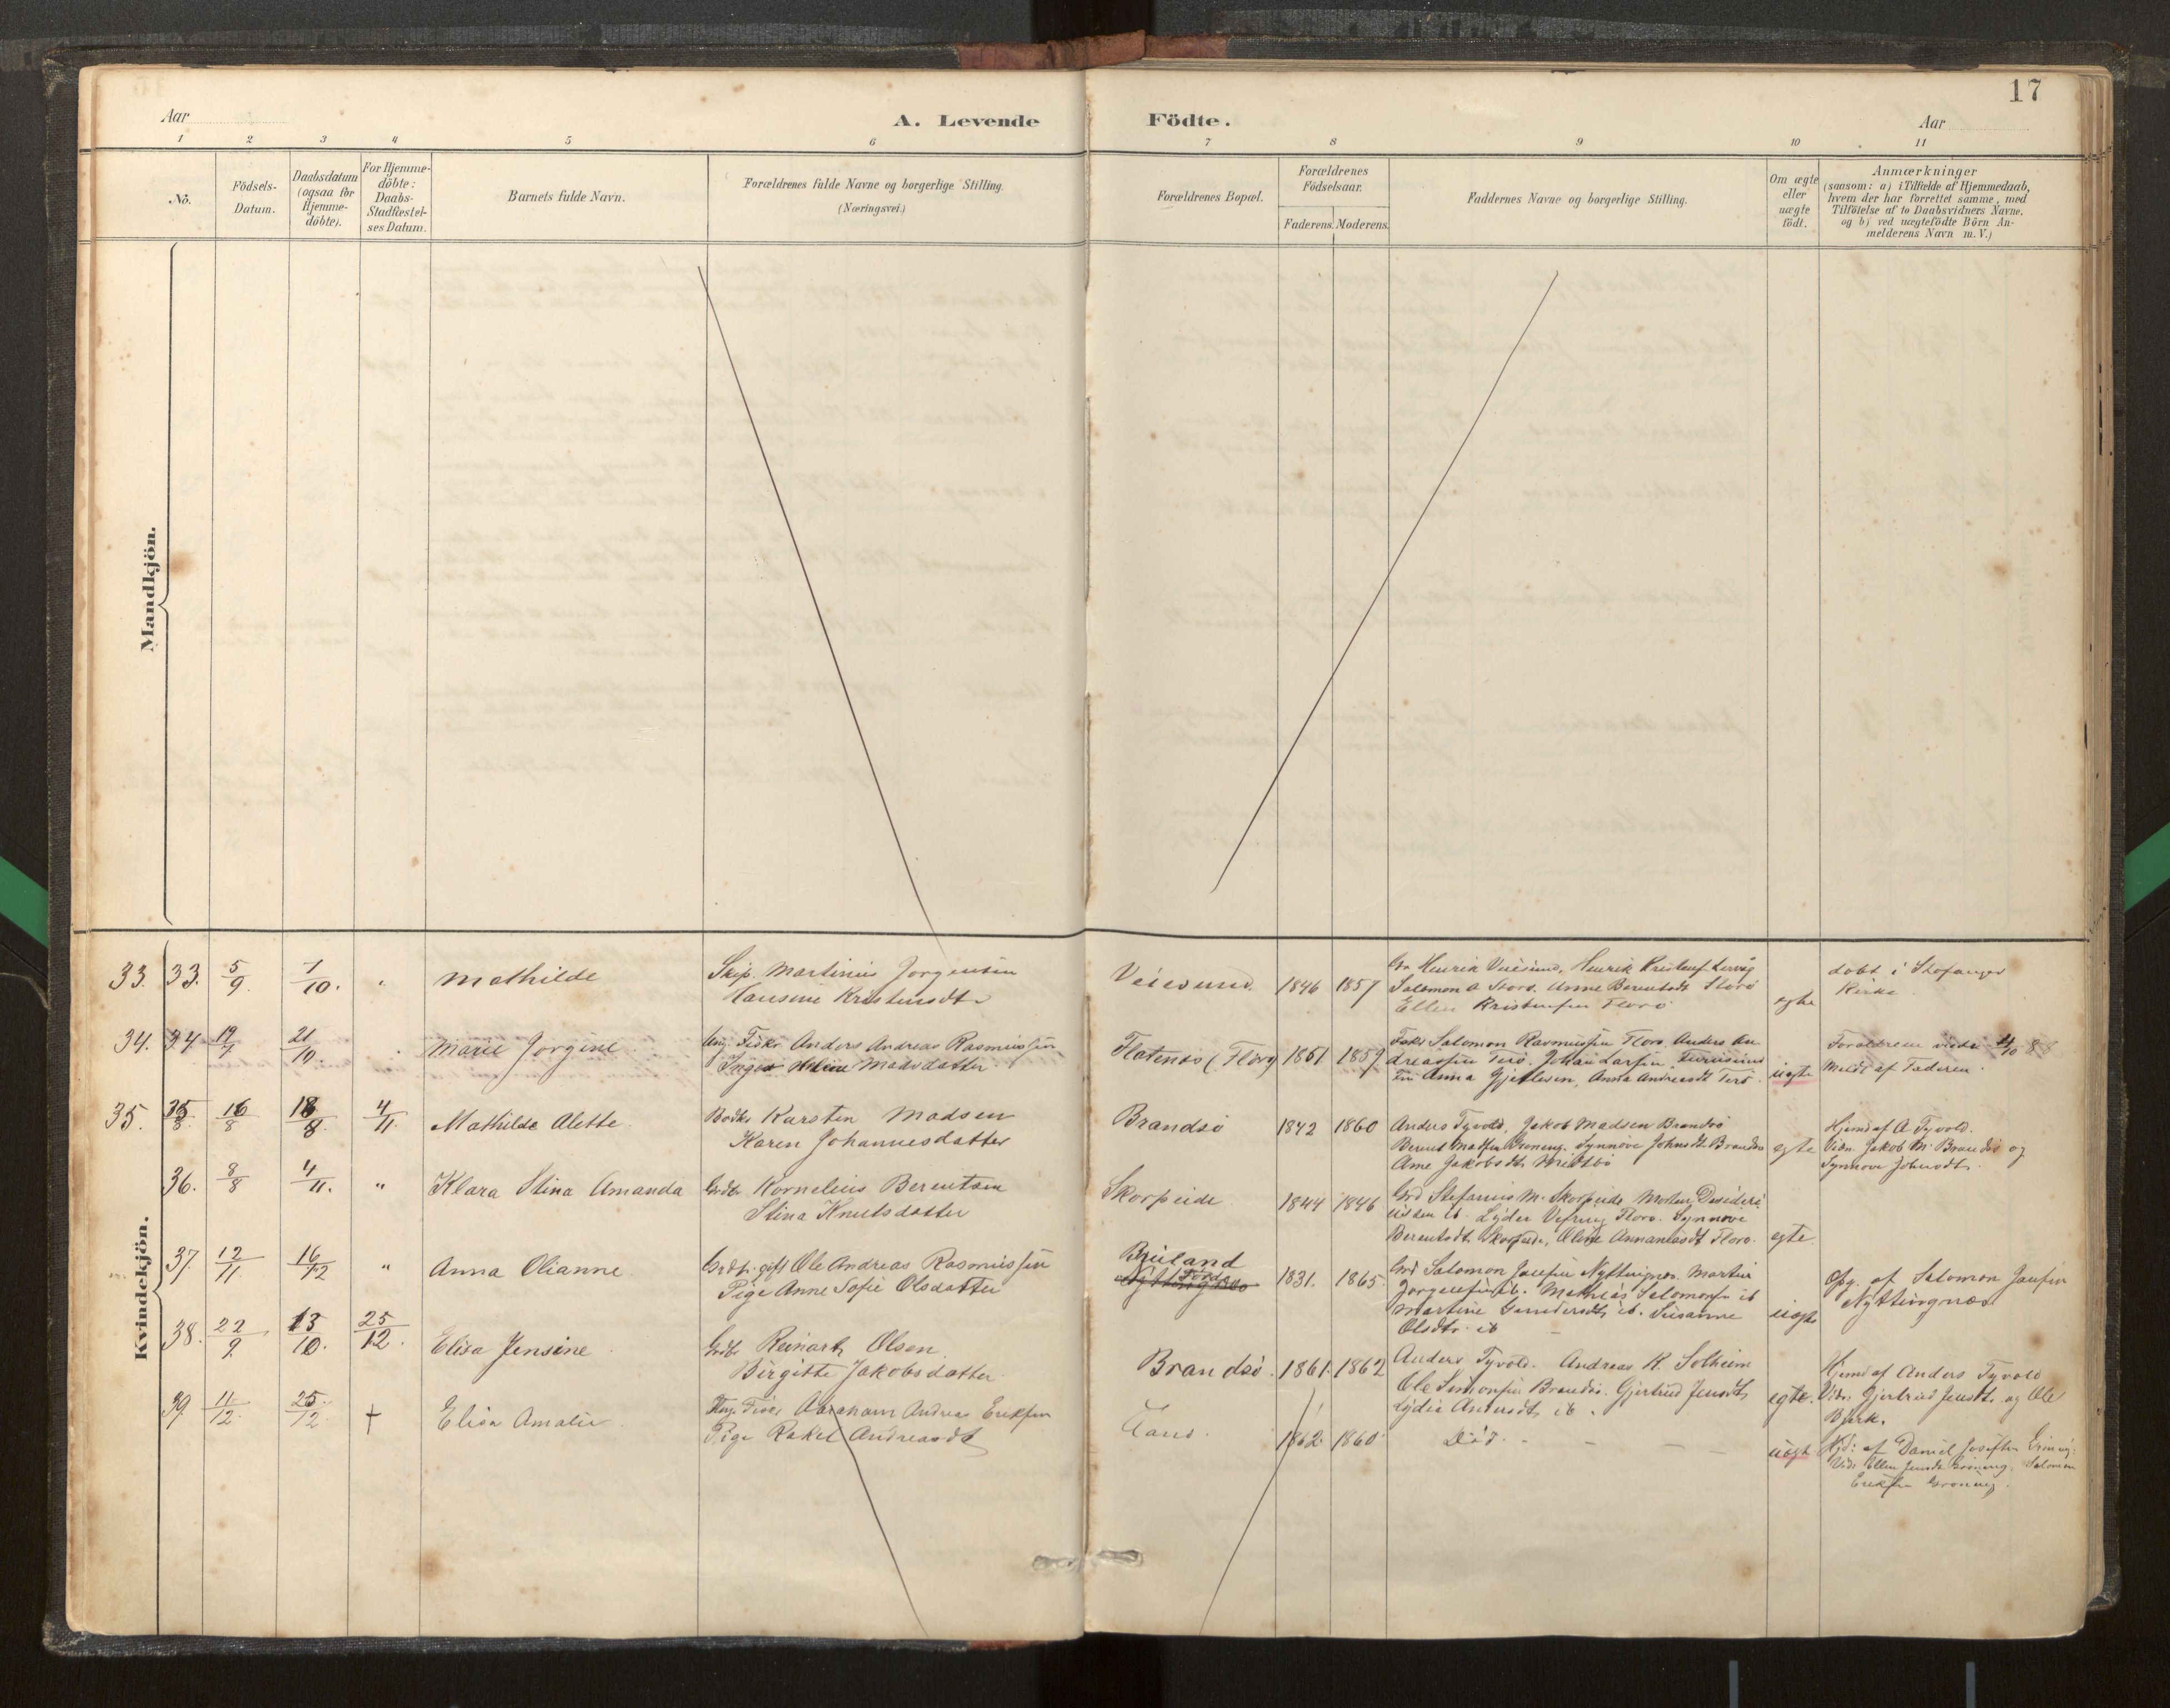 17
Aar
A. Levende
Födte.
Aar
1 2 3 4 5 6 7 8 9 10 11
No.
Födsels-
Datum.
Daabsdatum
(ogsaa for
Hjemme-
döbte).
For Hjemme-
döbte:
Daabs-
Stadfæstel-
ses Datum.
Barnets fulde Navn.
Forældrenes fulde Navne og borgerlige Stilling.
(Næringsvei.)
Forældrenes Bopæl.
Forældrenes
Födselsaar.
Faderens. Moderens.
Faddernes Navne og borgerlige Stilling.
Om ægte
eller
uægte
födt.
Anmærkninger
(saasom: a) i Tilfælde af Hjemmedaab,
hvem der har forrettet samme, med
Tilföielse af to Daabsvidners Navne.
og b) ved uægtefödte Börn An-
melderens Navn m. V.)
Mandkjön.
Kvindekjön.
33. 33. 5/9 7/10. Mathilde
Skip. Martinius Jorgensen
Hansine Kristensdtr
Veiesund. 1846 1857
Henrik Veiesund, Henrik Kristens.
Salomon A Floro. Anne Berentsdt Floro
Ellen Kristensen Floro
egte
döbt i Stafanger
Kirke
34. 34 21/10. Marie Jorgine
Ung. Fisker Anders Andreas Rasmussen
Inger Madsdatter
Flatenæs (Floro) 1861 1859
Salomon Rasmussen Floro Anders An
dreassen Terö. Johan Larsen
Anna Gjertsen, Anna Andreasdt Terö.
uegte
Forældrene viede 4/10 88
Meldt af Faderen.
35. 35 16/8 18/8 4/11. Mathilde Alette
Karsten Madsen
Karen Johannesdatter
Brandsö 1842 1860
Anders Tyvold, Jakob Madsen Brandsö
Berent Synnöve Johnsdt Brandsö
Ane Jakobsdt
egte
Hjemd af A Tyvold.
Vidn. Jakob M. Brandsö og
Synnöve Johnsdt.
36. 8/8 4/11. " Klara Stina Amanda
Grdbr Kornelius Berentsen
Stina Knutsdatter
Skorpeide 1844 1846
Grd Stefanus M. Skorpeide Morten
Floro. Synnöve
Berentsdt Skorpeide, Oline Floro.
egte
37. 12/11. 16/12 " Anna Olianne
Grdbr. gift Ole Andreas Rasmussen
Pige Anne Sofie Olsdatter
1831. 1865.
Grd Salomon Josefsen Nyttingnes. Martin
Jorgensen ib. Mathias Salomonsen ib
Martine ib. Susanne
Olsdtr. ib
uegte
Opg. af Salomon
Nyttingnæs
38. 22/9. 13/10 25/12. Elisa Jensine
Grdbr Reinart Olsen
Birgitte Jakobsdatter
Brandsö. 1861. 1862
Anders Tyvold. Andreas R. Solheim
Ole Simonsen Brandsö. Gjertrud Jensdt
Lydia Andersdt ib.
egte.
Hjemd af Anders Tyvold
Vidn. Gjertrud Jensdt. og Ole
Bjerk.
39. 11/12. 25/12. † Elisa Amalie
Abraham Andreas Eriksen
Pige Rakel Andreasdt
1862. 1860
Död.
uegt
Hjd: af Daniel Josefsen
Ellen Salomon
Eriksen